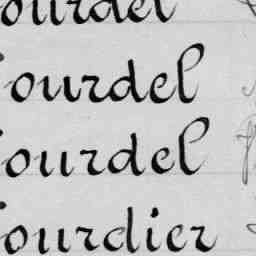 ourdel
ourdel
ourdel
ourdier